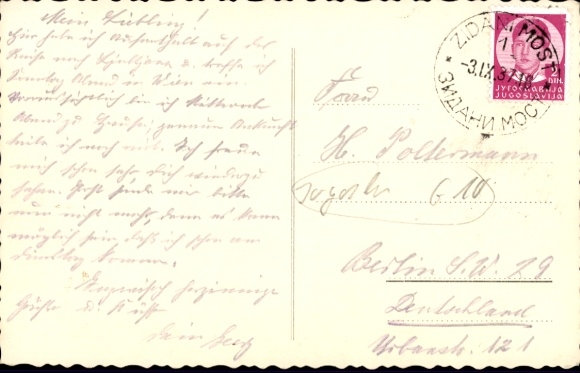 Mein Liebling!
Hier habe ich Aufenthalt auf der
Reise nach Ljubljana u. hoffe ich
Dienstag Abend in Wien
Voraussichtlich bin ich Mittwoch
Abend zu Hause; genaue Ankunft
teile ich noch mit. Ich freue
mich schon sehr Dich wiederzu
sehen. Post sende mir bitte
nun nicht mehr, denn es kann
möglich sein daß ich schon am
Dienstag komme.
herzinnige
Grüße u. Küsse
Dein
ZIDANI MOST
1
-3.IX.37.18
ЗИДАНИ МОСТ
2
DIN.
ЈУГОСЛАВИЈА
JUGOSLAVIJA
H. Poltermann
G 10
Berlin S.W. 29
Deutschland
Urbanstr. 121